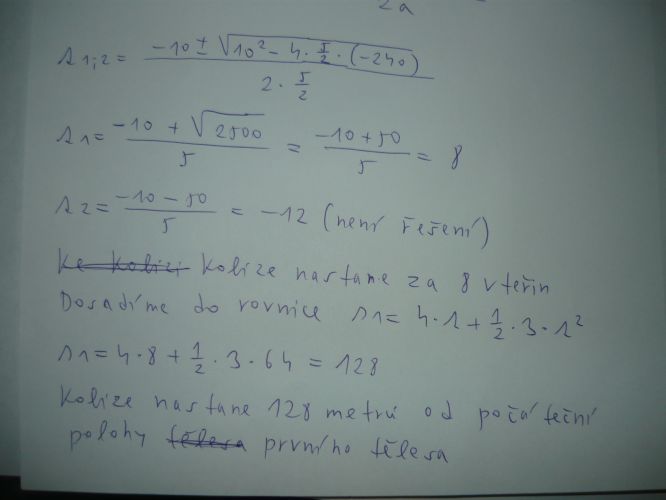 2a
s1,2 = (-10 ± √(10² - 4 · 5/2 · (-240))) / (2 · 5/2)
s1 = (-10 + √2500) / 5 = (-10 + 50) / 5 = 8
s2 = (-10 - 50) / 5 = -12 (není řešení)
Ke kolizi kolize nastane za 8 vteřin
Dosadíme do rovnice s1 = 4 · s + 1/2 · 3 · s²
s1 = 4 · 8 + 1/2 · 3 · 64 = 128
Kolize nastane 128 metrů od počáteční
polohy tělesa prvního tělesa